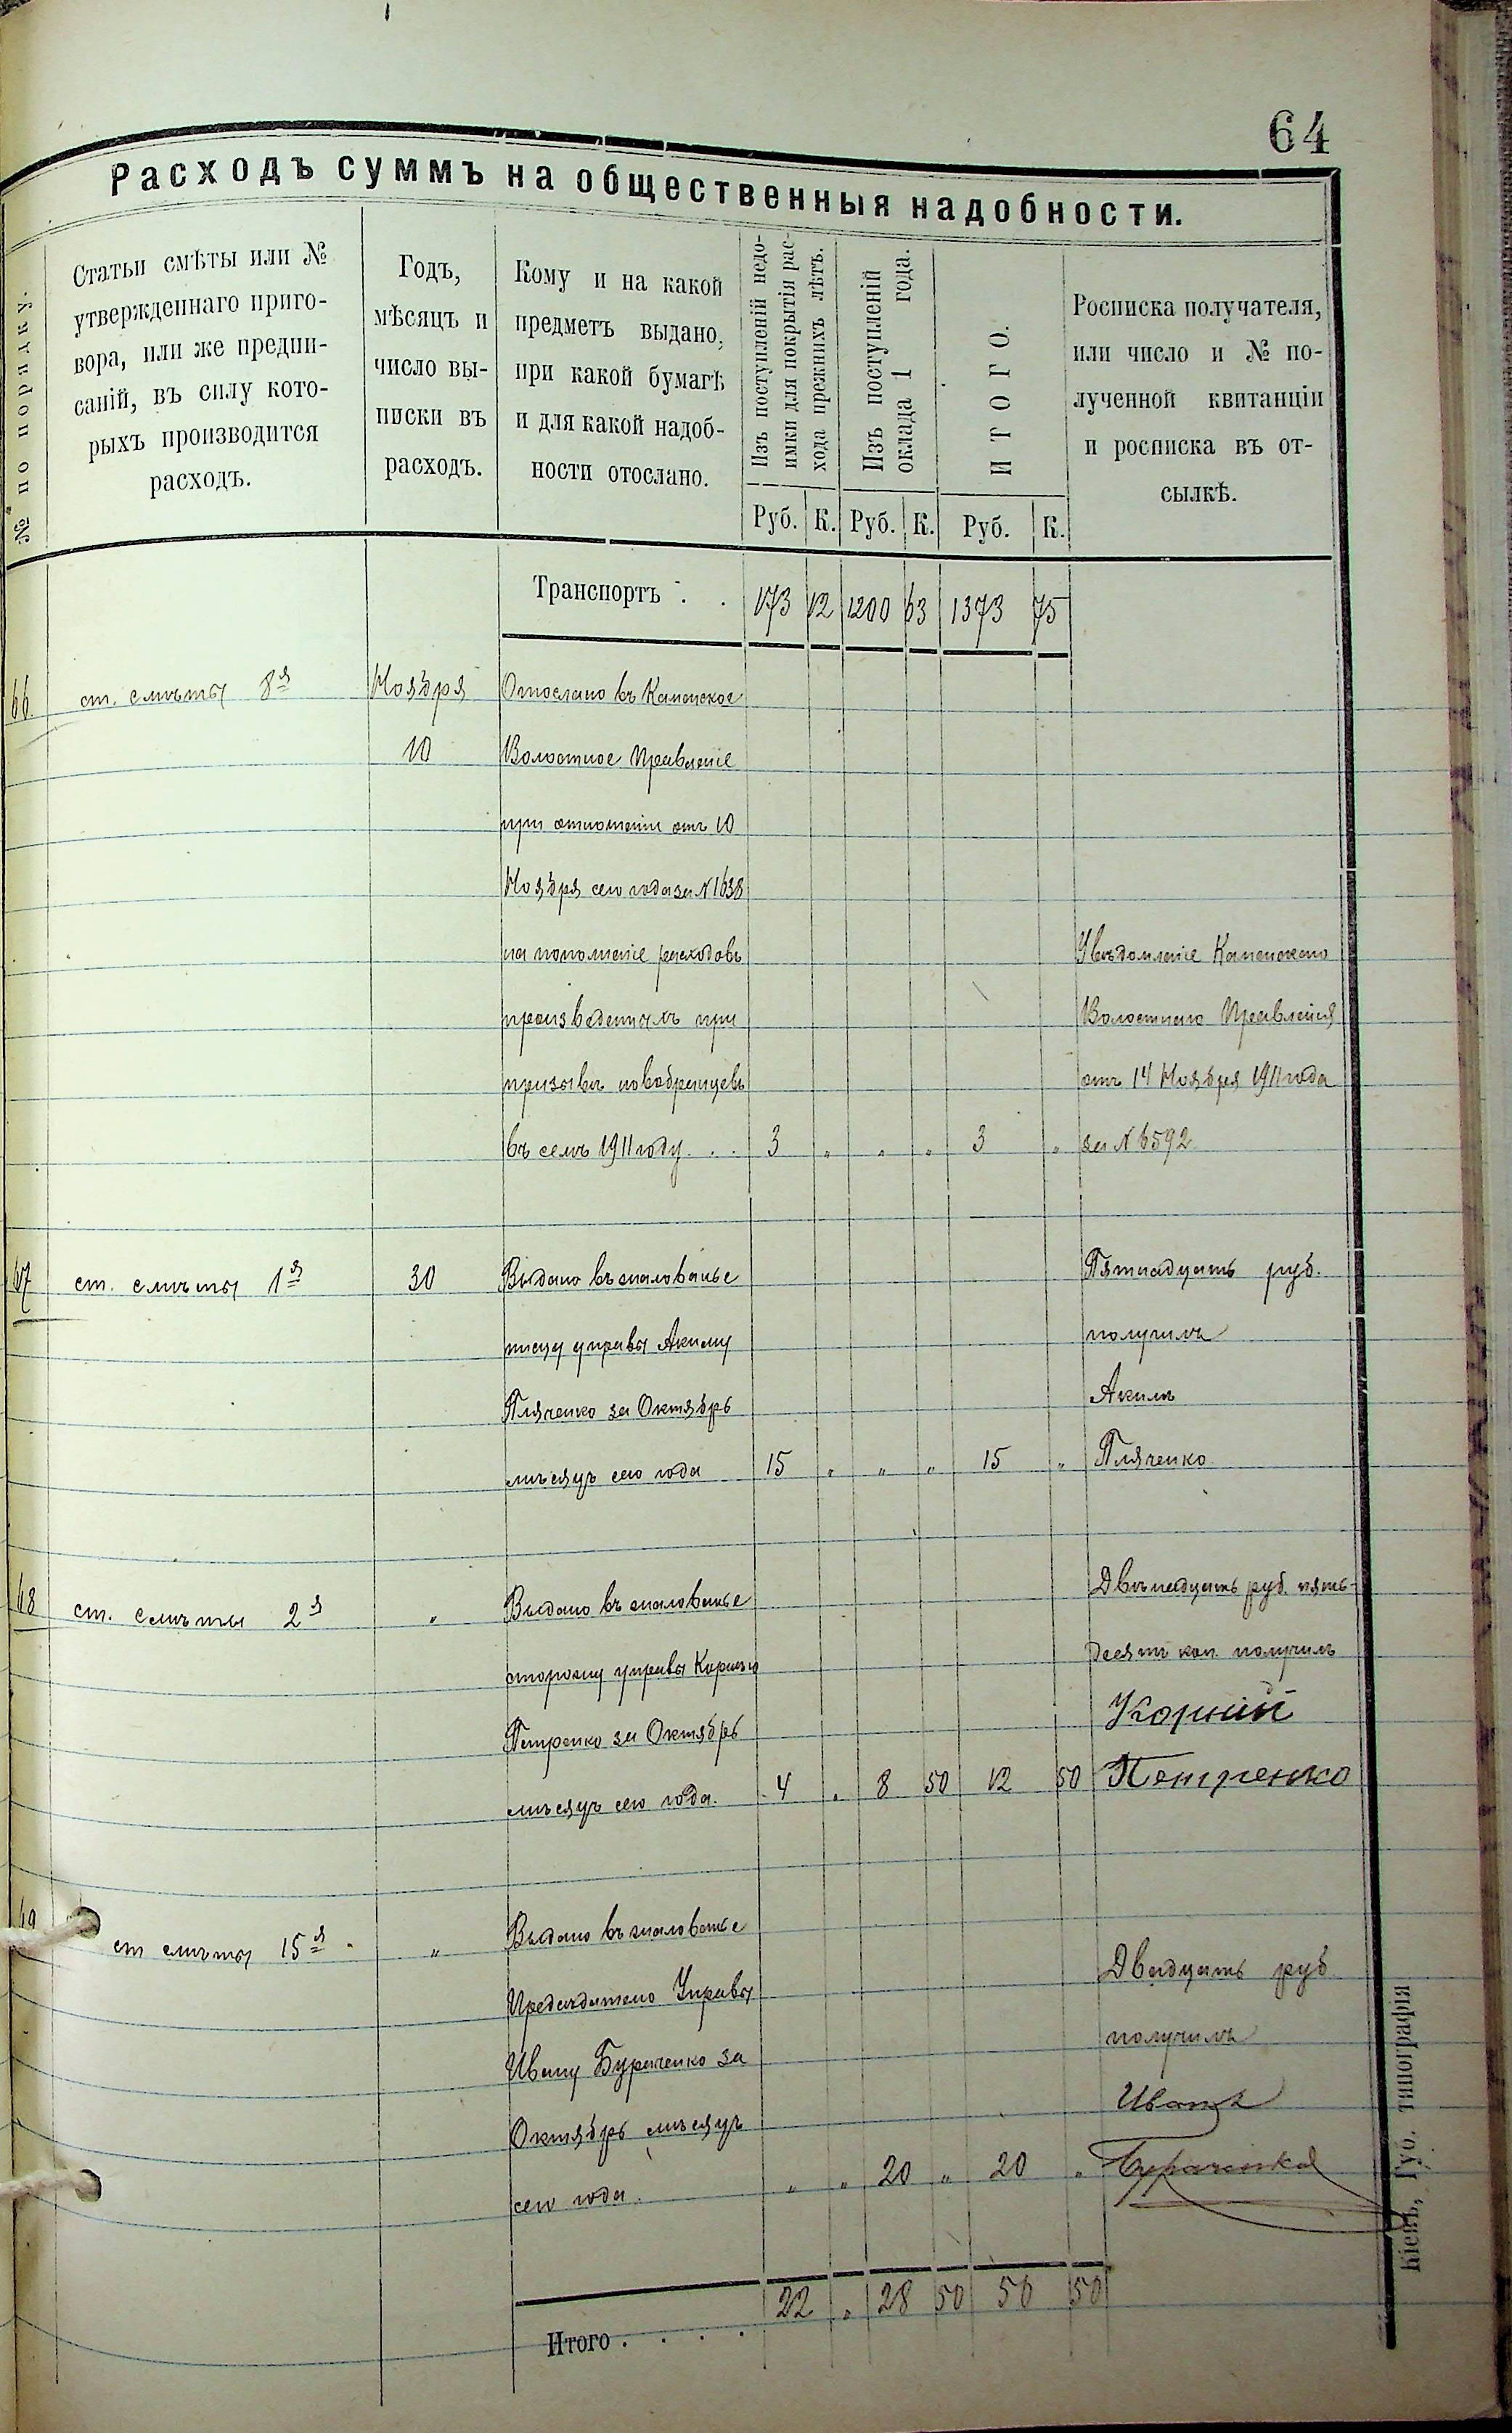 64
Расходъ суммъ на общественныя надобности.
№ по порядку.
Статьи смѣты или №
утвержденнаго приго-
вора, или же предпи-
саній, въ силу кото-
рыхъ производится
расходъ.
Годъ,
мѣсяцъ и
число вы-
писки въ
расходъ.
Кому и на какой
предметъ выдано,
при какой бумагѣ
и для какой надоб-
ности отослано.
Изъ поступленій недо-
имки для покрытія рас-
хода прежнихъ лѣтъ.
Изъ поступленій
оклада 1 года.
ИТОГО.
Росписка получателя,
или число и № по-
лученной квитанціи
и росписка въ от-
сылкѣ.
Руб. К. Руб. К. Руб. К.
Транспортъ . . 173 12 1200 63 1373 75
66 ст. смѣты 8я Ноября Отослано въ Каменское
10 Волостное Правленіе
при отношеніи отъ 10
Ноября сего года за № 1638
на пополненіе расходовъ Увѣдомленіе Каменского
произведенныхъ при Волостного Правленія
призывѣ новобранцевъ отъ 14 Ноября 1911 года
въ семъ 1911 году. . . 3 „ „ „ 3 „ за № 6592
67 ст. смѣты 1я 30 Выдано въ жалованье Пятнадцать руб.
писцу управы Акиму получилъ
Пляченко за Октябрь Акимъ
мѣсяцъ сего года 15 „ „ „ 15 „ Пляченко
68 ст. смѣты 2я „ Выдано въ жалованье Двѣнадцать руб. пять-
сторожу управы Корнію десятъ коп. получилъ
Петренко за Октябрь Корній
мѣсяцъ сего года. 4 „ 8 50 12 50 Петренко
69 ст смѣты 15я. „ Выдано въ жалованье
Предсѣдателю Управы Двадцать руб
Ивану Бураченко за получилъ
Октябрь мѣсяцъ Иванъ
сего года. „ „ 20 „ 20 „ Бураченко
Итого . . . . 22 „ 28 50 50 50
Кіевъ, Губ. типографія